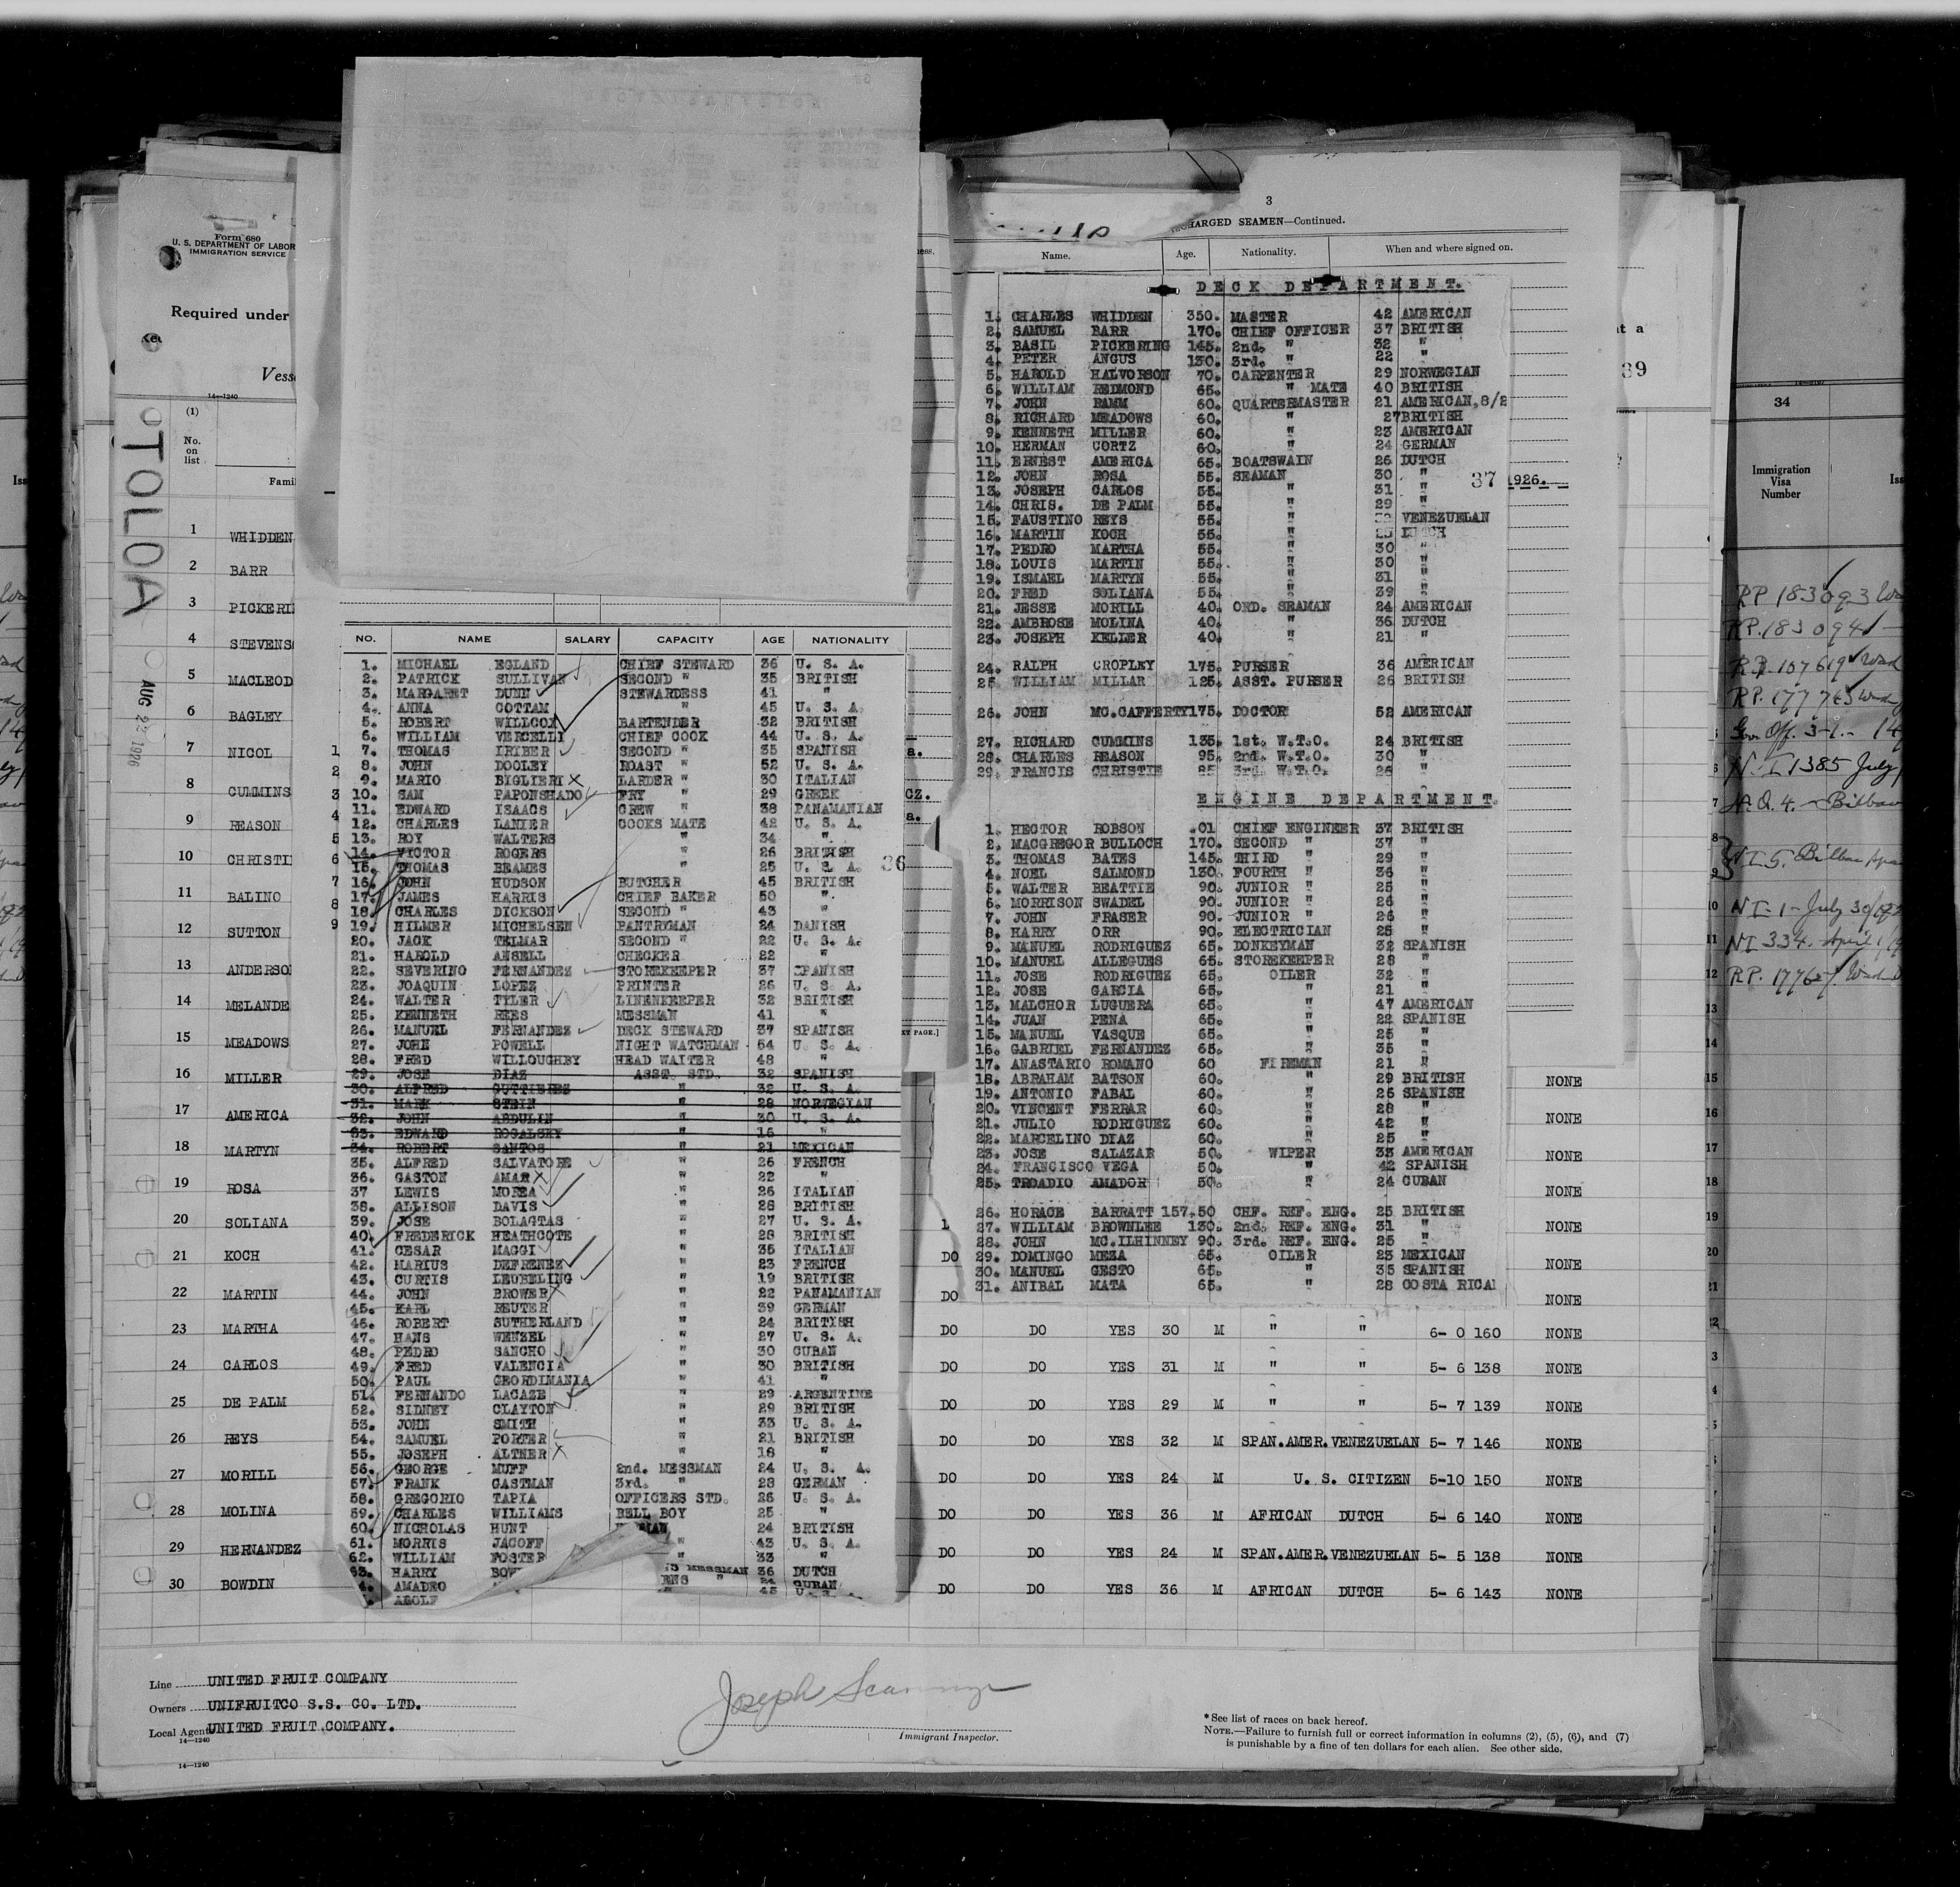 Form 680
U. S. DEPARTMENT OF LABOR
IMMIGRATION SERVICE
Required under
14—1240
TOLOA
AUG 22 1926
(1)
No.
on
list
1 WHIDDEN
2 BARR
3 PICKERI
4 STEVENS
5 MACLEOD
6 BAGLEY
7 NICOL
8 CUMMINS
9 REASON
10 CHRISTI
11 BALINO
12 SUTTON
13 ANDERSO
14 MELANDE
15 MEADOWS
16 MILLER
17 AMERICA
18 MARTYN
19 ROSA
20 SOLIANA
21 KOCH
22 MARTIN
23 MARTHA
24 CARLOS
25 DE PALM
26 REYS
27 MORILL
28 MOLINA
29 HERNANDEZ
30 BOWDIN
NO. NAME SALARY CAPACITY AGE NATIONALITY
1. MICHAEL EGLAND CHIEF STEWARD 36 U. S. A.
2. PATRICK SULLIVAN SECOND " 35 BRITISH
3. MARGARET DUNN STEWARDESS 41 "
4. ANNA COTTAM " 45 U. S. A.
5. ROBERT WILLCOX BARTENDER 32 BRITISH
6. WILLIAM VERCELLI CHIEF COOK 44 U. S. A.
7. THOMAS IRIBER SECOND " 35 SPANISH
8. JOHN DOOLEY ROAST " 52 U. S. A.
9. MARIO BIGLIERI LARDER " 30 ITALIAN
10. SAM PAPONSHADO FRY " 29 GREEK
11. EDWARD ISAACS CREW " 38 PANAMANIAN
12. CHARLES LANIER COOKS MATE 42 U. S. A.
13. ROY WALTERS " 34 "
14. VICTOR ROGERS " 26 BRITISH
15. THOMAS BEAMES " 25 U. S. A.
16. JOHN HUDSON BUTCHER 45 BRITISH
17. JAMES HARRIS CHIEF BAKER 50 "
18. CHARLES DICKSON SECOND " 43 "
19. HILMER MICHELSEN PANTRYMAN 24 DANISH
20. JACK TELMAR SECOND " 22 U. S. A.
21. HAROLD ANSELL CHECKER 22 "
22. SEVERINO FERNANDEZ STOREKEEPER 37 SPANISH
23. JOAQUIN LOPEZ PRINTER 26 U. S. A.
24. WALTER TYLER LINENKEEPER 32 BRITISH
25. KENNETH REES MESSMAN 41 "
26. MANUEL FERNANDEZ DECK STEWARD 37 SPANISH
27. JOHN POWELL NIGHT WATCHMAN 54 U. S. A.
28. FRED WILLOUGHBY HEAD WAITER 48 "
29. JOSE DIAZ ASST. STD. 32 SPANISH
30. ALFRED GUTTIEREZ " 32 U. S. A.
31. MARK STEIN " 28 NORWEGIAN
32. JOHN ABDULIN " 30 U. S. A.
33. EDWARD ROGALSKY " 16 "
34. ROBERT SANTOS " 21 MEXICAN
35. ALFRED SALVATORE " 26 FRENCH
36. GASTON AMAR " 22 "
37 LEWIS MOREA " 26 ITALIAN
38. ALLISON DAVIS " 28 BRITISH
39. JOSE BOLAGTAS " 27 U. S. A.
40. FREDERICK HEATHCOTE " 28 BRITISH
41. CESAR MAGGI " 35 ITALIAN
42. MARIUS DEFRENEZ " 23 FRENCH
43. CURTIS LEUBELING " 19 BRITISH
44. JOHN BROWER " 22 PANAMANIAN
45. KARL REUTER " 39 GERMAN
46. ROBERT SUTHERLAND " 24 BRITISH
47. HANS WENZEL " 27 U. S. A.
48. PEDRO SANCHO " 30 CUBAN
49. FRED VALENCIA " 30 BRITISH
50. PAUL GEORDIMANIA " 41 "
51. FERNANDO LACAZE " 29 ARGENTINE
52. SIDNEY CLAYTON " 29 BRITISH
53. JOHN SMITH " 33 U. S. A.
54. SAMUEL PORTER " 21 BRITISH
55. JOSEPH ALTNER " 18 "
56. GEORGE MUFF 2nd. MESSMAN 24 U. S. A.
57. FRANK GASTMAN 3rd. 23 GERMAN
58. GREGORIO TAPIA OFFICERS STD. 25 U. S. A.
59. CHARLES WILLIAMS BELL BOY 25 "
60. NICHOLAS HUNT 24 BRITISH
61. MORRIS JACOFF " 43 U. S. A.
62. WILLIAM FOSTER " 33 "
63. HARRY MESSMAN 36 DUTCH
AMADEO " 24 CUBAN
ADOLF 45
36
3
CHARGED SEAMEN—Continued.
Name. Age. Nationality. When and where signed on.
DECK DEPARTMENT.
1. CHARLES WHIDDEN 350. MASTER 42 AMERICAN
2. SAMUEL BARR 170. CHIEF OFFICER 37 BRITISH
3. BASIL PICKERING 145. 2nd. " 32 "
4. PETER ANGUS 130. 3rd. " 22 "
5. HAROLD HALVORSON 70. CARPENTER 29 NORWEGIAN
6. WILLIAM REDMOND 65. " MATE 40 BRITISH
7. JOHN RAMM 60. QUARTERMASTER 21 AMERICAN, 8/2
8. RICHARD MEADOWS 60. " 27 BRITISH
9. KENNETH MILLER 60. " 23 AMERICAN
10. HERMAN CORTZ 60. " 24 GERMAN
11. ERNEST AMERICA 65. BOATSWAIN 26 DUTCH
12. JOHN ROSA 55. SEAMAN 30 " 37 1926.
13. JOSEPH CARLOS 55. " 31 "
14. CHRIS. DE PALM 55. " 29 "
15. FAUSTINO REYS 55. " VENEZUELAN
16. MARTIN KOCH 55. " DUTCH
17. PEDRO MARTHA 55. " 30 "
18. LOUIS MARTIN 55. " 30 "
19. ISMAEL MARTYN 55. " 31 "
20. FRED SOLIANA 55. " 39 "
21. JESSE MORILL 40. ORD. SEAMAN 24 AMERICAN
22. AMBROSE MOLINA 40. " 36 DUTCH
23. JOSEPH KELLER 40. " 21 "
24. RALPH CROPLEY 175. PURSER 36 AMERICAN
25 WILLIAM MILLAR 125. ASST. PURSER 26 BRITISH
26. JOHN MC.CAFFERTY 175. DOCTOR 52 AMERICAN
27. RICHARD CUMMINS 135. 1st. W.T.O. 24 BRITISH
28. CHARLES REASON 95. 2nd. W.T.O. 30 "
29. FRANCIS CHRISTIE 85 3rd. W.T.O. 26 "
ENGINE DEPARTMENT.
1. HECTOR ROBSON .01 CHIEF ENGINEER 37 BRITISH
2. MACGREGOR BULLOCH 170. SECOND " 37 "
3. THOMAS BATES 145. THIRD " 29 "
4. NOEL SALMOND 130. FOURTH " 36 "
5. WALTER BEATTIE 90. JUNIOR " 25 "
6. MORRISON SWADEL 90. JUNIOR " 26 "
7. JOHN FRASER 90. JUNIOR " 26 "
8. HARRY ORR 90. ELECTRICIAN 25 "
9. MANUEL RODRIGUEZ 65. DONKEYMAN 32 SPANISH
10. MANUEL ALLEGUES 65. STOREKEEPER 28 "
11. JOSE RODRIGUEZ 65. OILER 32 "
12. JOSE GARCIA 65. " 21 "
13. MALCHOR LUGUERA 65. " 47 AMERICAN
14. JUAN PENA 65. " 22 SPANISH
15. MANUEL VASQUE 65. " 25 "
16. GABRIEL FERNANDEZ 65. " 35 "
17. ANASTARIO ROMANO 60 FIREMAN 21 "
18. ABRAHAM BATSON 60. " 29 BRITISH
19. ANTONIO FABAL 60. " 26 SPANISH
20. VINCENT FERRAR 60. " 28 "
21. JULIO RODRIGUEZ 60. " 42 "
22. MARCELINO DIAZ 60. " 25 "
23. JOSE SALAZAR 50. WIPER 33 AMERICAN
24. FRANCISCO VEGA 50. " 42 SPANISH
25. TROADIO AMADOR 50. " 24 CUBAN
26. HORACE BARRATT 157.50 CHF. REF. ENG. 25 BRITISH
27. WILLIAM BROWNLEE 130. 2nd. REF. ENG. 31 "
28. JOHN MC.ILHINNEY 90. 3rd. REF. ENG. 25 "
29. DOMINGO MEZA 65. OILER 23 MEXICAN
30. MANUEL GESTO 65. " 35 SPANISH
31. ANIBAL MATA 65. " 28 COSTA RICA
DO DO YES 30 M " " 6- 0 160 NONE
DO DO YES 31 M " " 5- 6 138 NONE
DO DO YES 29 M " " 5- 7 139 NONE
DO DO YES 32 M SPAN.AMER. VENEZUELAN 5- 7 146 NONE
DO DO YES 24 M U. S. CITIZEN 5-10 150 NONE
DO DO YES 36 M AFRICAN DUTCH 5- 6 140 NONE
DO DO YES 24 M SPAN.AMER. VENEZUELAN 5- 5 138 NONE
DO DO YES 36 M AFRICAN DUTCH 5- 6 143 NONE
39
34
Immigration
Visa
Number
RP 183093
RP. 183094
RP. 107619 Wash
RP. 177743
N-I 1385 July
H.Q. 4. - Bilbao
NI 5. Bilbao
NI-1- July 30
NI 334. April
RP. 177627. Wash
Line UNITED FRUIT COMPANY
Owners UNIFRUITCO S.S. CO. LTD.
Local Agent UNITED FRUIT COMPANY.
14—1240
14—1240
Joseph
Immigrant Inspector.
* See list of races on back hereof.
NOTE.—Failure to furnish full or correct information in columns (2), (5), (6), and (7)
is punishable by a fine of ten dollars for each alien. See other side.